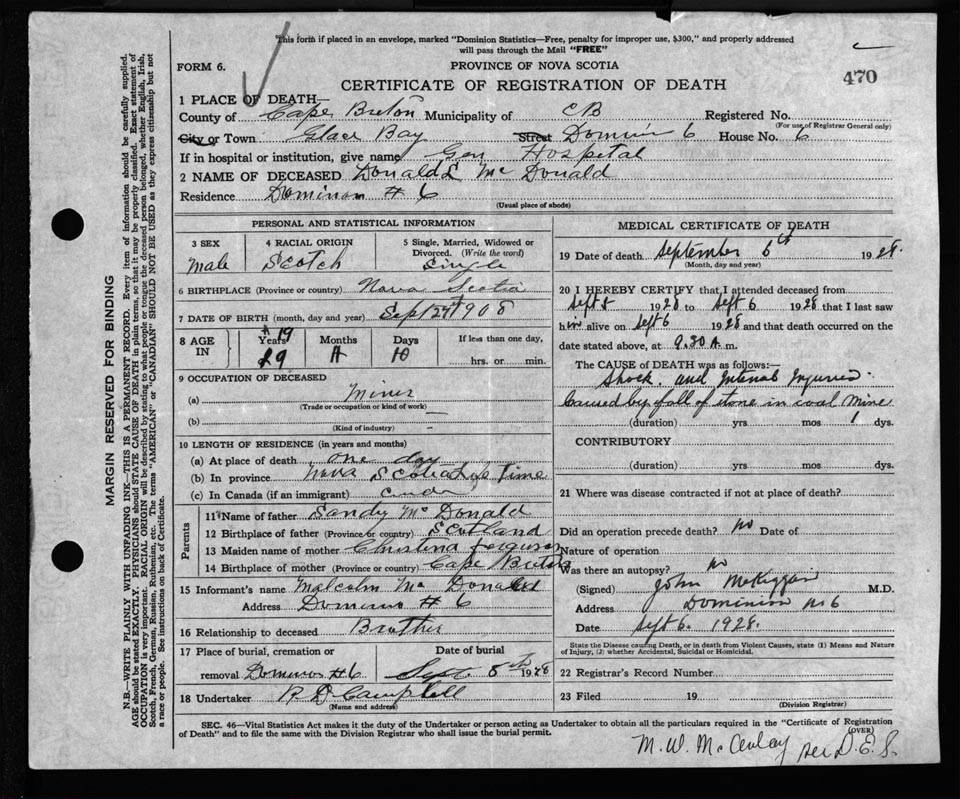 This form if placed in an envelope, marked "Dominion Statistics—Free, penalty for improper use, $300," and properly addressed
will pass through the Mail "FREE"
FORM 6.
PROVINCE OF NOVA SCOTIA
470
CERTIFICATE OF REGISTRATION OF DEATH
1 PLACE OF DEATH—
County of Cape Breton Municipality of CB Registered No.
(For use of Registrar General only)
City or Town Glace Bay Street Dominion 6 House No. 6
If in hospital or institution, give name Gen Hospital
2 NAME OF DECEASED Donald McDonald
Residence Dominion # 6
(Usual place of abode)
PERSONAL AND STATISTICAL INFORMATION
3 SEX 4 RACIAL ORIGIN 5 Single, Married, Widowed or Divorced. (Write the word)
Male Scotch Single
6 BIRTHPLACE (Province or country) Nova Scotia
7 DATE OF BIRTH (month, day and year) Sept 27 1908
8 AGE IN Years Months Days If less than one day,
19 10 hrs. or min.
9 OCCUPATION OF DECEASED
(a) Miner
(Trade or occupation or kind of work)
(b)
(Kind of industry)
10 LENGTH OF RESIDENCE (in years and months)
(a) At place of death one day
(b) In province Nova Scotia Time
(c) In Canada (if an immigrant)
Parents
11 Name of father Sandy McDonald
12 Birthplace of father (Province or country) Scotland
13 Maiden name of mother Christina Ferguson
14 Birthplace of mother (Province or country) Cape Breton
15 Informant's name Malcolm McDonald
Address Dominion # 6
16 Relationship to deceased Brother
17 Place of burial, cremation or removal Dominion #6 Date of burial Sept 8th 1928
18 Undertaker R D Campbell
(Name and address)
MEDICAL CERTIFICATE OF DEATH
19 Date of death September 6th 1928.
(Month, day and year)
20 I HEREBY CERTIFY that I attended deceased from
Sept 5 1928 to Sept 6 1928 that I last saw
him alive on Sept 6 1928 and that death occurred on the
date stated above, at 9.30 A. m.
The CAUSE OF DEATH was as follows:—
Shock and Internal Injuries
Caused by fall of stone in coal Mine
(duration) yrs. mos 1 dys.
CONTRIBUTORY
(duration) yrs. mos. dys.
21 Where was disease contracted if not at place of death?
Did an operation precede death? no Date of
Nature of operation
Was there an autopsy? no
(Signed) John McKiggan M.D.
Address Dominion No 6
Date Sept 6. 1928.
State the Disease causing Death, or in death from Violent Causes, state (1) Means and Nature of Injury, (2) whether Accidental, Suicidal or Homicidal.
22 Registrar's Record Number
23 Filed 19
(Division Registrar)
SEC. 46—Vital Statistics Act makes it the duty of the Undertaker or person acting as Undertaker to obtain all the particulars required in the "Certificate of Registration
of Death" and to file the same with the Division Registrar who shall issue the burial permit.
(OVER)
M. W. McAulay per D.E.S.
MARGIN RESERVED FOR BINDING
N.B.—WRITE PLAINLY WITH UNFADING INK—THIS IS A PERMANENT RECORD. Every item of information should be carefully supplied.
AGE should be stated EXACTLY. PHYSICIANS should STATE CAUSE OF DEATH in plain terms, so that it may be properly classified. Exact statement of
OCCUPATION is very important. RACIAL ORIGIN will be described by stating to what people or tongue the deceased person belonged, whether English, Irish,
Scotch, French, German, Russian, Ruthenian, etc. The terms "AMERICAN" or "CANADIAN" SHOULD NOT BE USED as they express citizenship but not
a race or people. See instructions on back of Certificate.